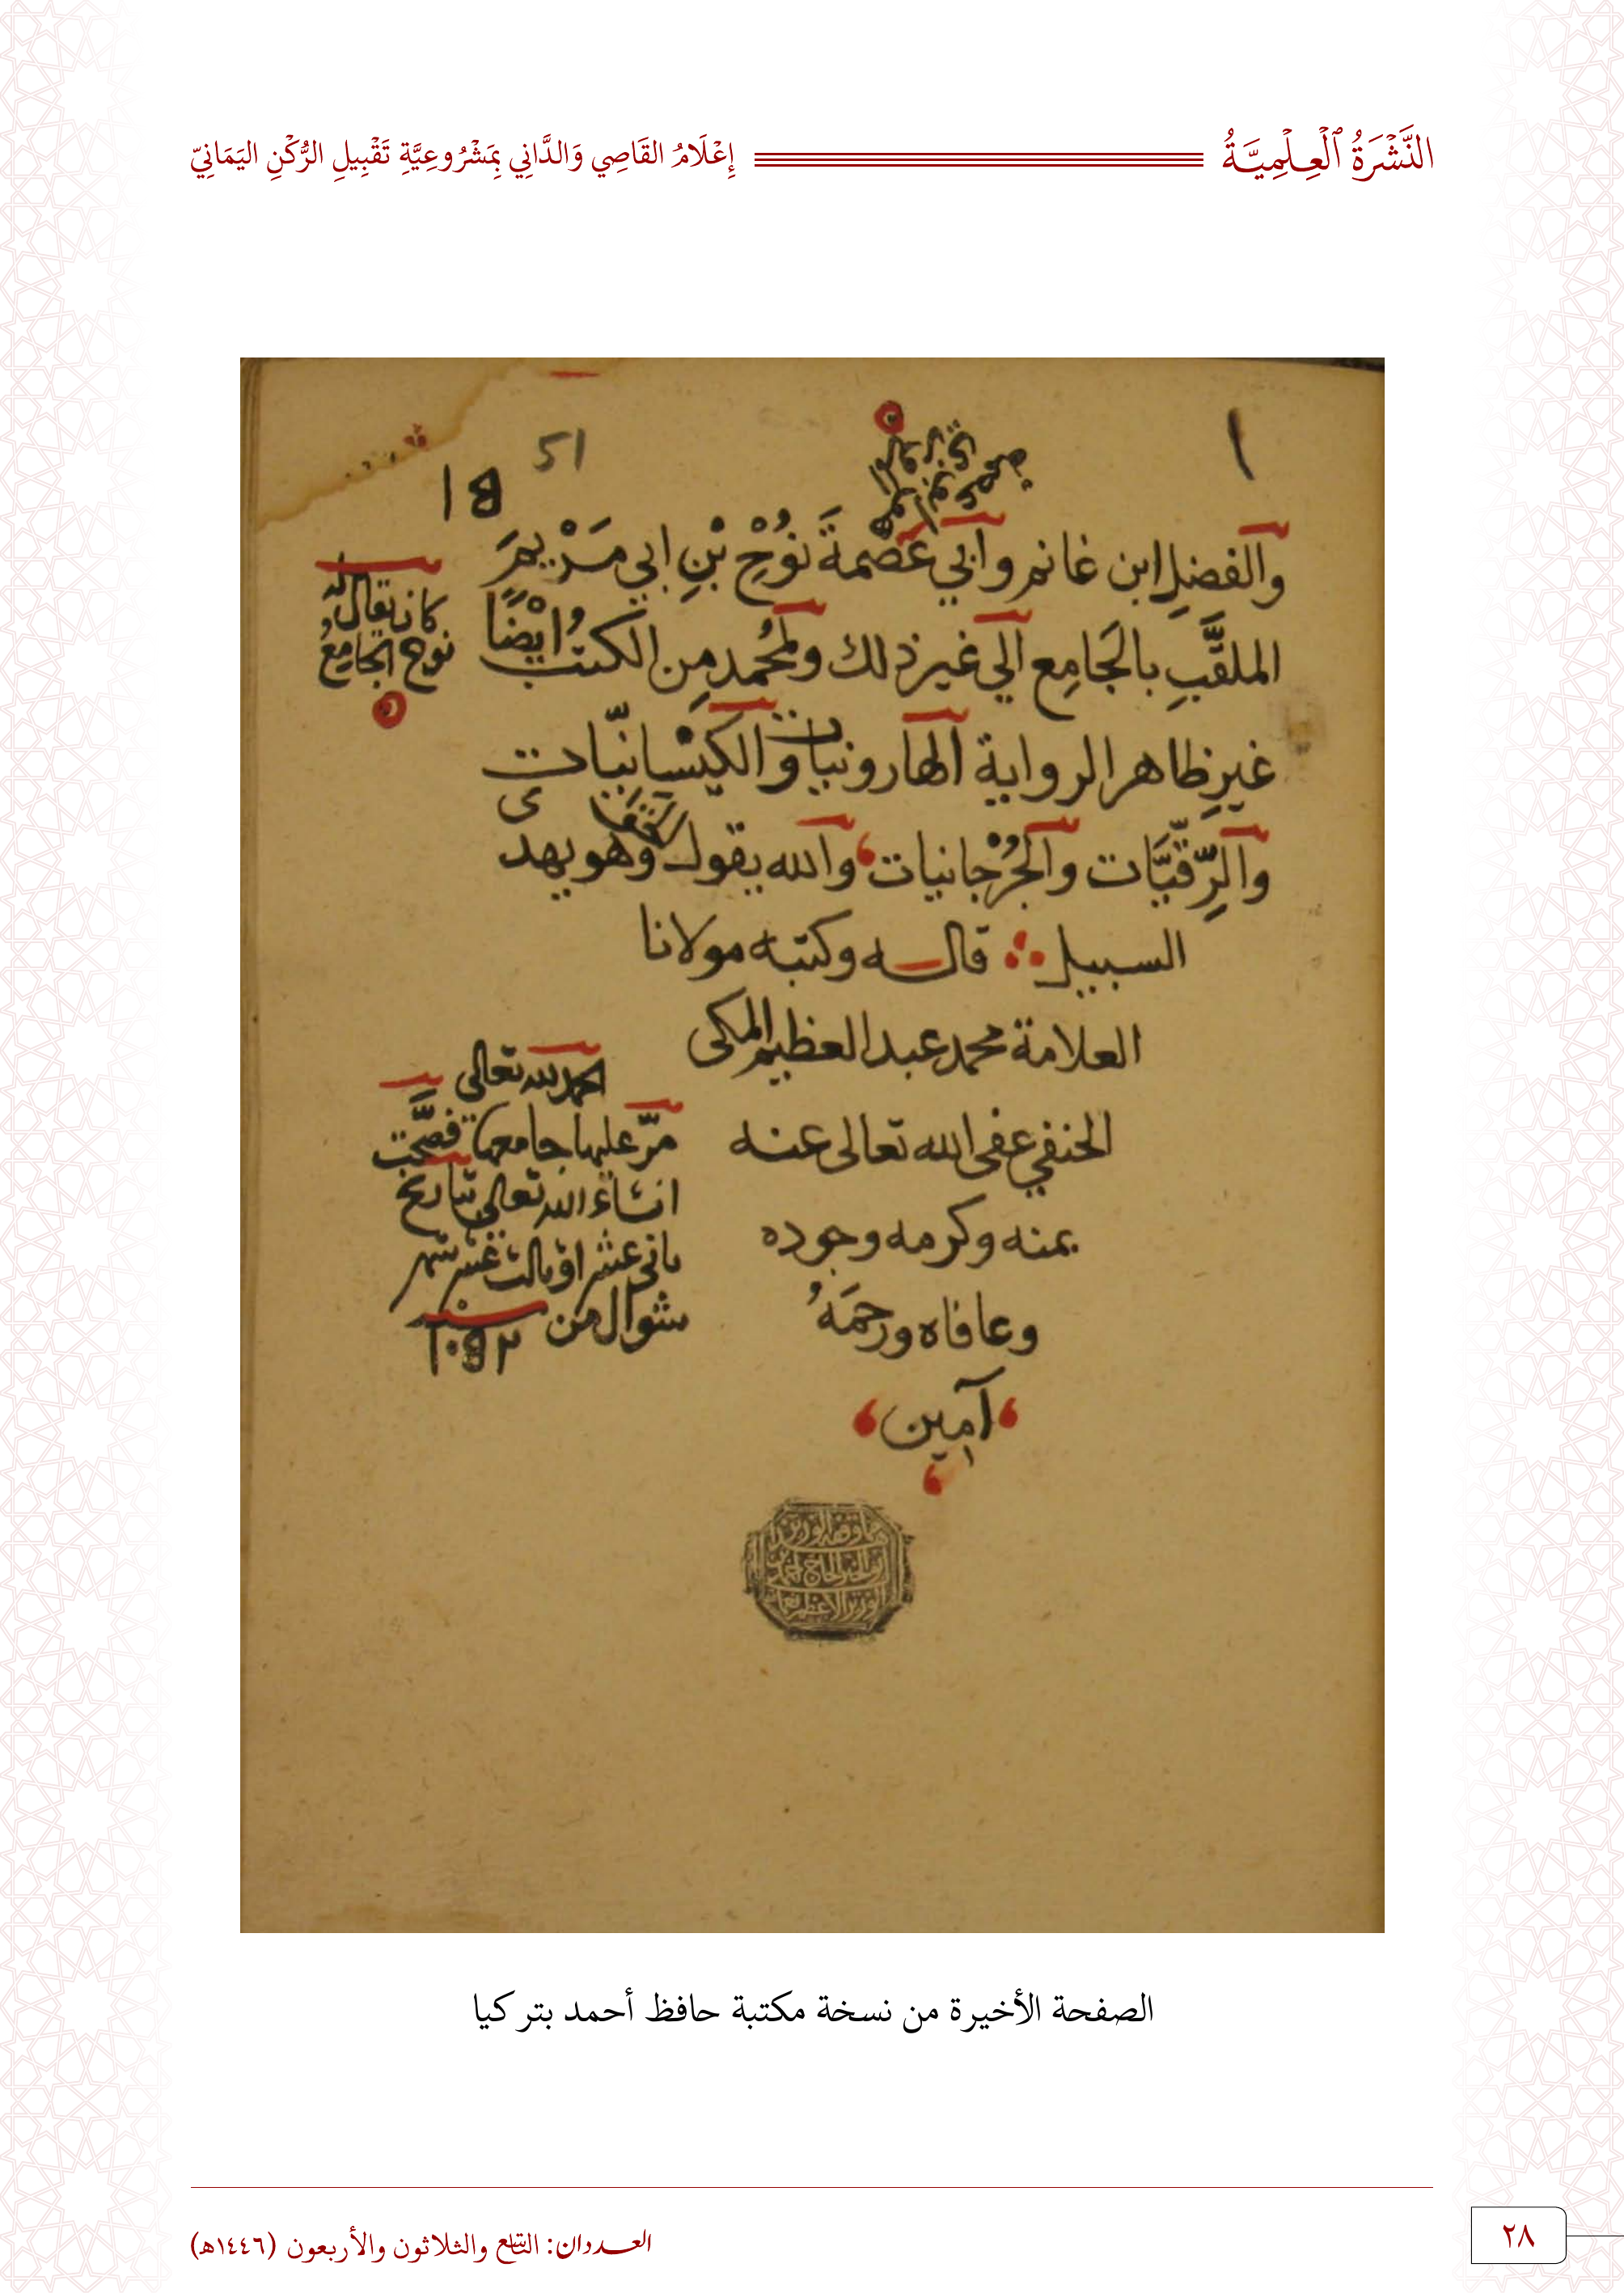 النَّشْرَةُ ٱلْعِلْمِيَّةُ
إِعْلَامُ القَاصِي وَالدَّانِي بِمَشْرُوعِيَّةِ تَقْبِيلِ الرُّكْنِ اليَمَانِيّ
١
51
١٥
والفضلِ ابن غانم وأبي عَصْمةَ نُوْحِ بْنِ ابي مَرْيمَ
كان يقال له
نوح الجامِعُ
الملقَّبِ بالجَامِع الي غير ذلك ولمُحمد مِن الكتُب ايْضًا
غيرِ ظاهر الرواية الهارونيات والكَيْسانيّات
والرِّقيَّات والجُرْجانيات والله يقول وهو يهدي
السبيل قاله وكتبه مولانا
العلامة محمد عبد العظيم المكى
الحنفي عفى الله تعالى عنه
بمنه وكرمه وجوده
وعافاه ورحمَهُ
آمين
الحمد لله تعالى
مرّ عليها جامعها فصحَّت
انشاء الله تعالى بتاريخ
ثاني عشر او ثالث عشر شهر
شوال من سنة
١٠٥٢
الصفحة الأخيرة من نسخة مكتبة حافظ أحمد بتركيا
العددان: التاسع والثلاثون والأربعون (١٤٤٦هـ)
٢٨